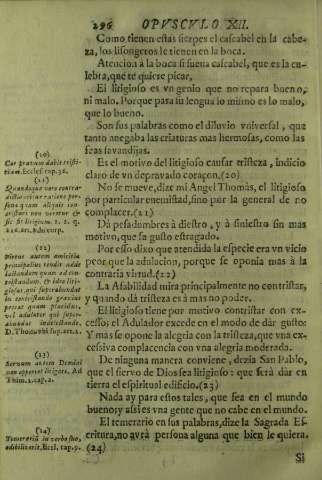 296 OPVSCVLO XII.
Como tienen estas sierpes el cascabel en la cabe-
za, los lisongeros le tienen en la boca.
Atencion à la boca si suena cascabel, que es la cu-
lebra, que te quiere picar,
El litigioso es vn genio que no repara bueno,
ni malo. Porque para su lengua lo mismo es lo malo,
que lo bueno.
Son sus palabras como el diluvio vniversal, que
tanto anegaba las criaturas mas hermosas, como las
feas savandijas.
Es el motivo del litigioso causar tristeza, indicio
claro de vn depravado coraçon. (20)
No se mueve, dize mi Angel Thomàs, el litigioso
por particular enemistad, sino por la general de no
complacer. (21)
Dà pesadumbres à diestro, y à siniestro sin mas
motivo, que su gusto estragado.
Por esso dixo que atendida la especie era vn vicio
peor que la adulacion, porque se oponia mas à la
contraria virtud. (22)
La Afabilidad mira principalmente no contristar,
y quando dà tristeza es à mas no poder.
El litigioso tiene por motivo contristar con ex-
cesso; el Adulador excede en el modo de dár gusto:
Y mas se opone la alegria con la tristeza, que vna ex-
cessiva complacencia con vna alegria moderada.
De ninguna manera conviene, dezia San Pablo,
que el siervo de Dios sea litigioso: que serà dar en
tierra el espiritual edificio. (23)
Nada ay para estos tales, que sea en el mundo
bueno; y assi es vna gente que no cabe en el mundo.
El temerario en sus palabras, dize la Sagrada Es-
critura, no avrà persona alguna que bien le quiera.
(24)
Si
(20)
Cor gravum dabit tristi-
tiam. Eccles. cap. 36.
(21)
Quandoque vero contra-
dictio
(22)
D. Thom. vbi sup. art. 2.
(23)
Servum autem Domini
non oportet litigare. Ad
Thim. 2. cap. 2.
(24)
Temerarius in verbo suo,
odibilis erit. Eccl. cap. 9.